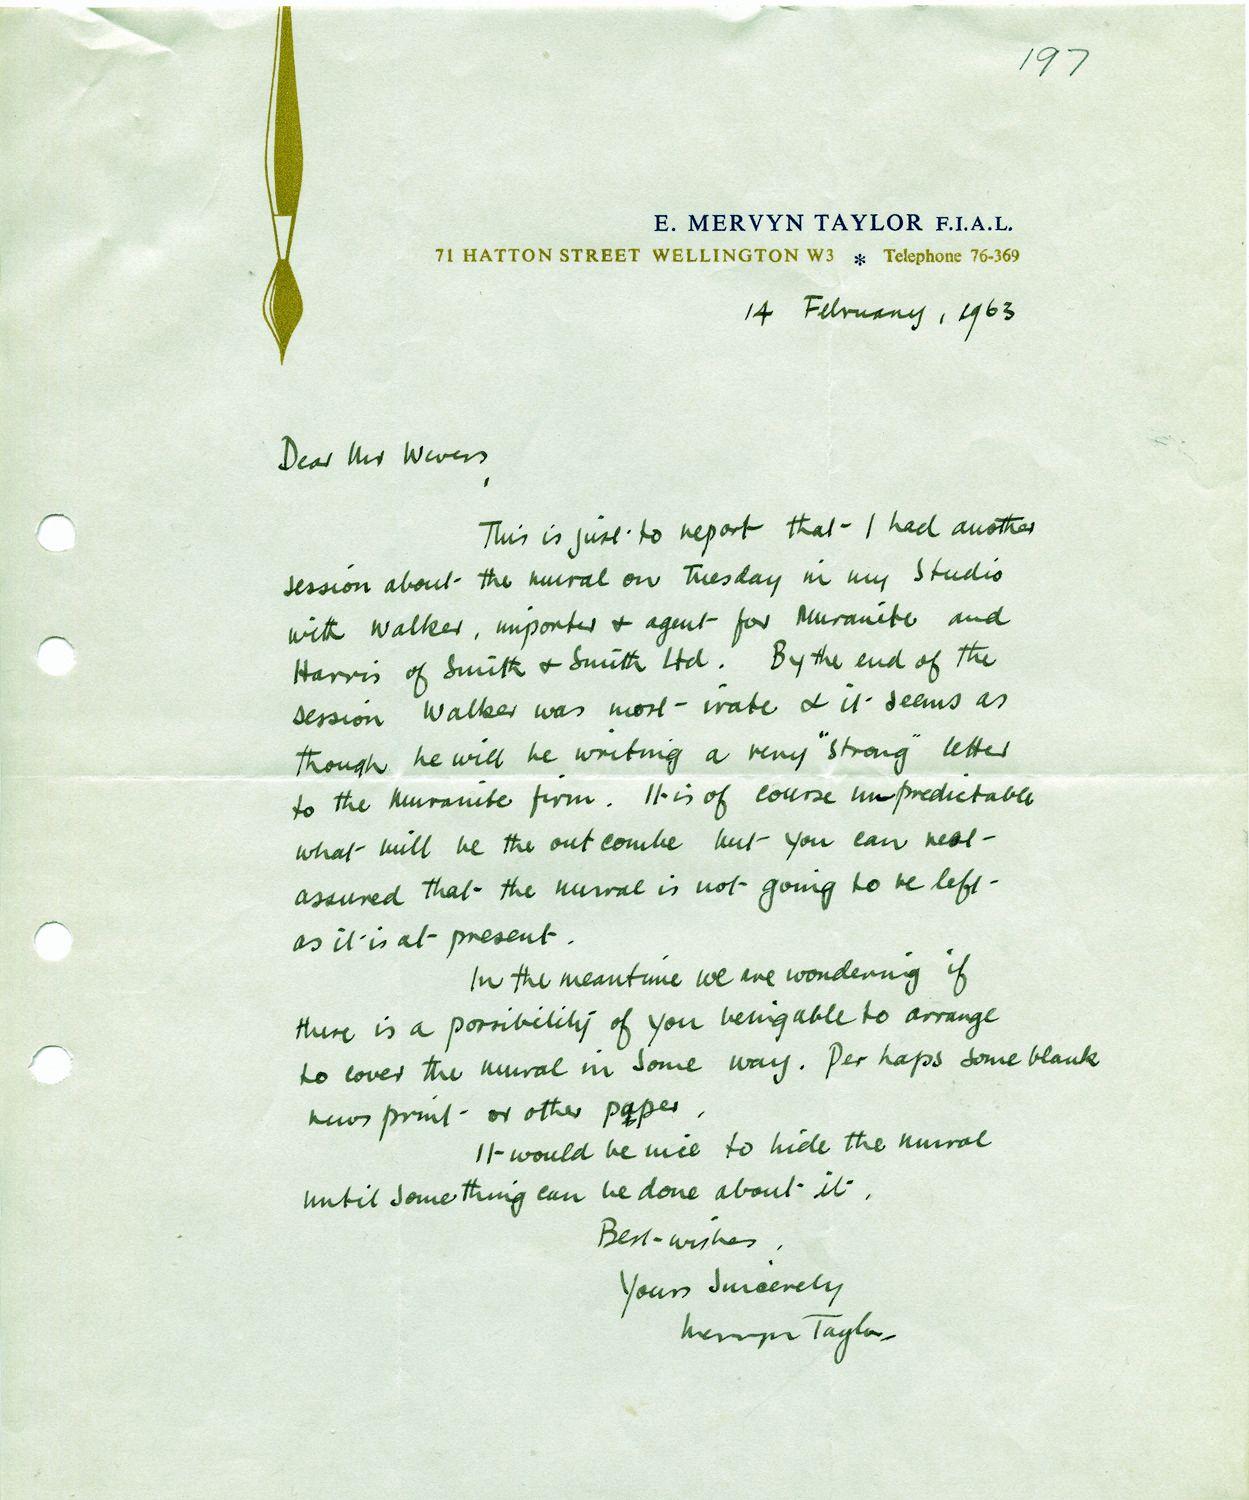 197
E. MERVYN TAYLOR F.I.A.L.
71 HATTON STREET WELLINGTON W3 * Telephone 76-369
14 February, 1963
Dear Mr Wevers,
This is just to report that I had another
session about the mural on Tuesday in my Studio
with Walker, importer & agent for Muranite and
Harris of Smith & Smith Ltd. By the end of the
session Walker was most irate & it seems as
though he will be writing a very "strong" letter
to the Muranite firm. It is of course unpredictable
what will be the outcombe but you can rest
assured that the mural is not going to be left
as it is at present.
In the meantime we are wondering if
there is a possibility of you being able to arrange
to cover the mural in some way. Perhaps some blank
news print or other paper.
It would be nice to hide the mural
until something can be done about it.
Best wishes,
Yours Sincerely
Mervyn Taylor